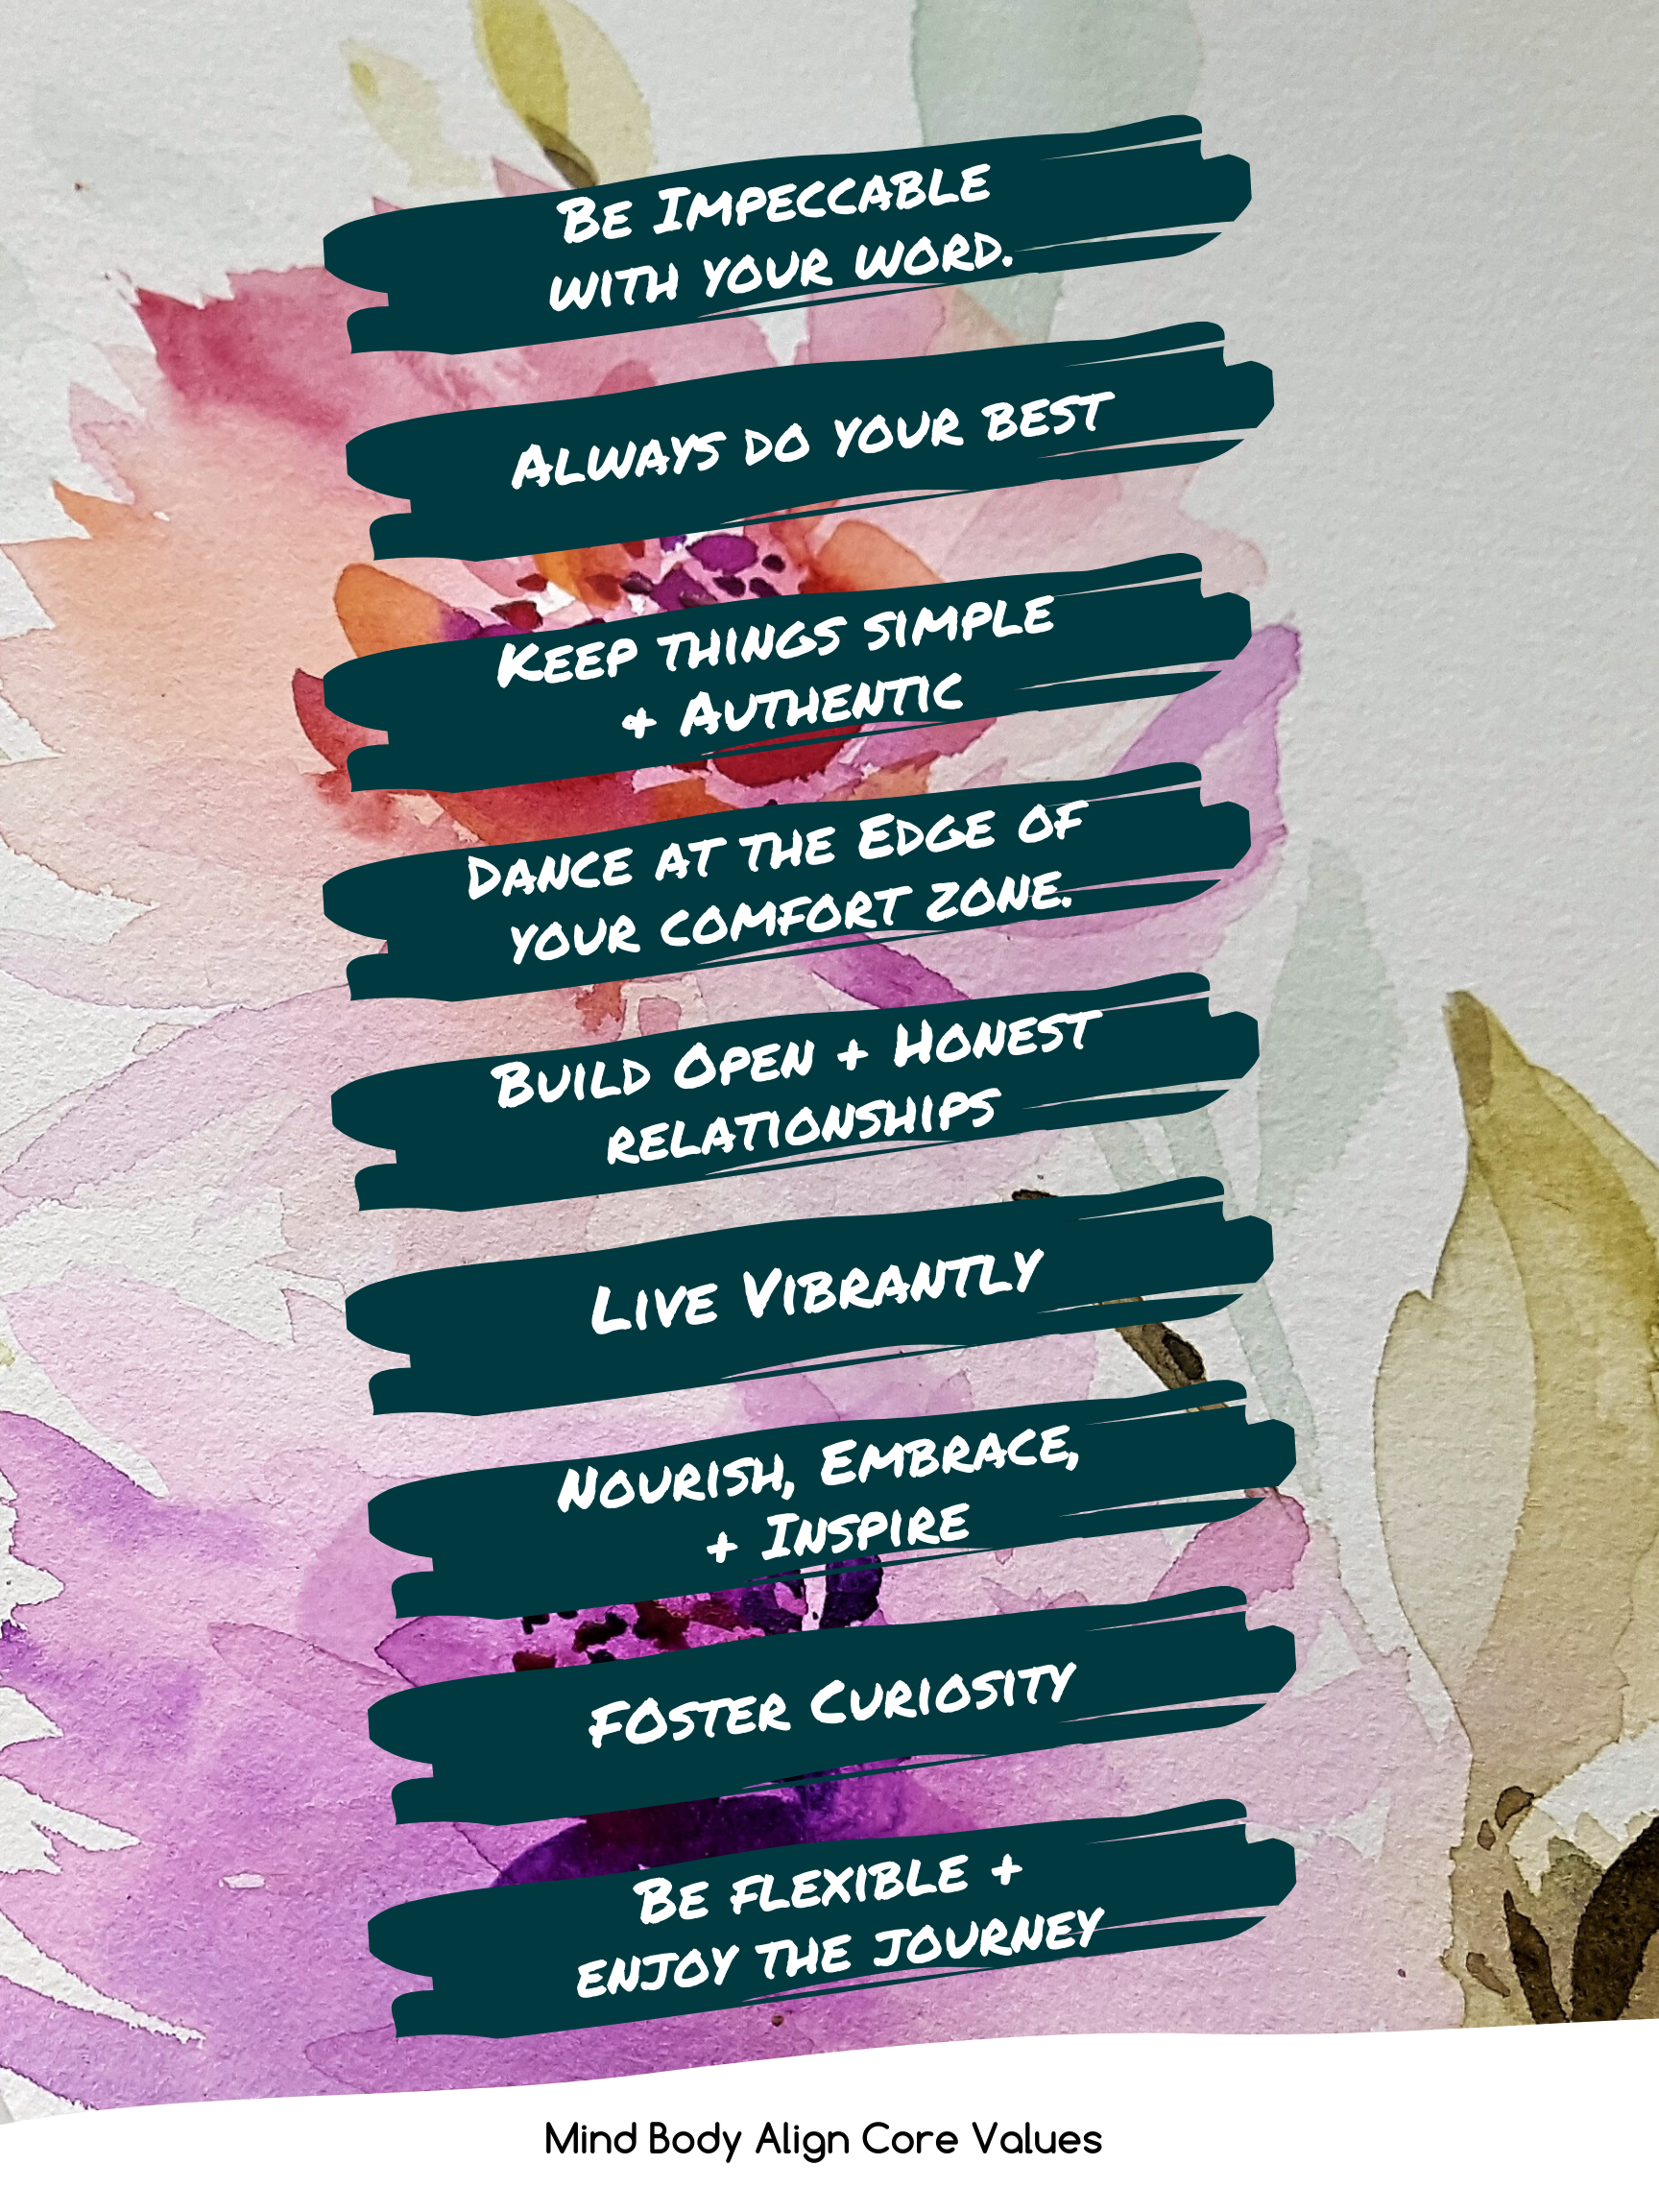 Be Impeccable
with your word.
Always do your best
Keep things simple
& Authentic
Dance at the Edge of
your comfort zone.
Build Open + Honest
relationships
Live Vibrantly
Nourish, Embrace,
+ Inspire
FOster Curiosity
Be flexible +
enjoy the journey
Mind Body Align Core Values